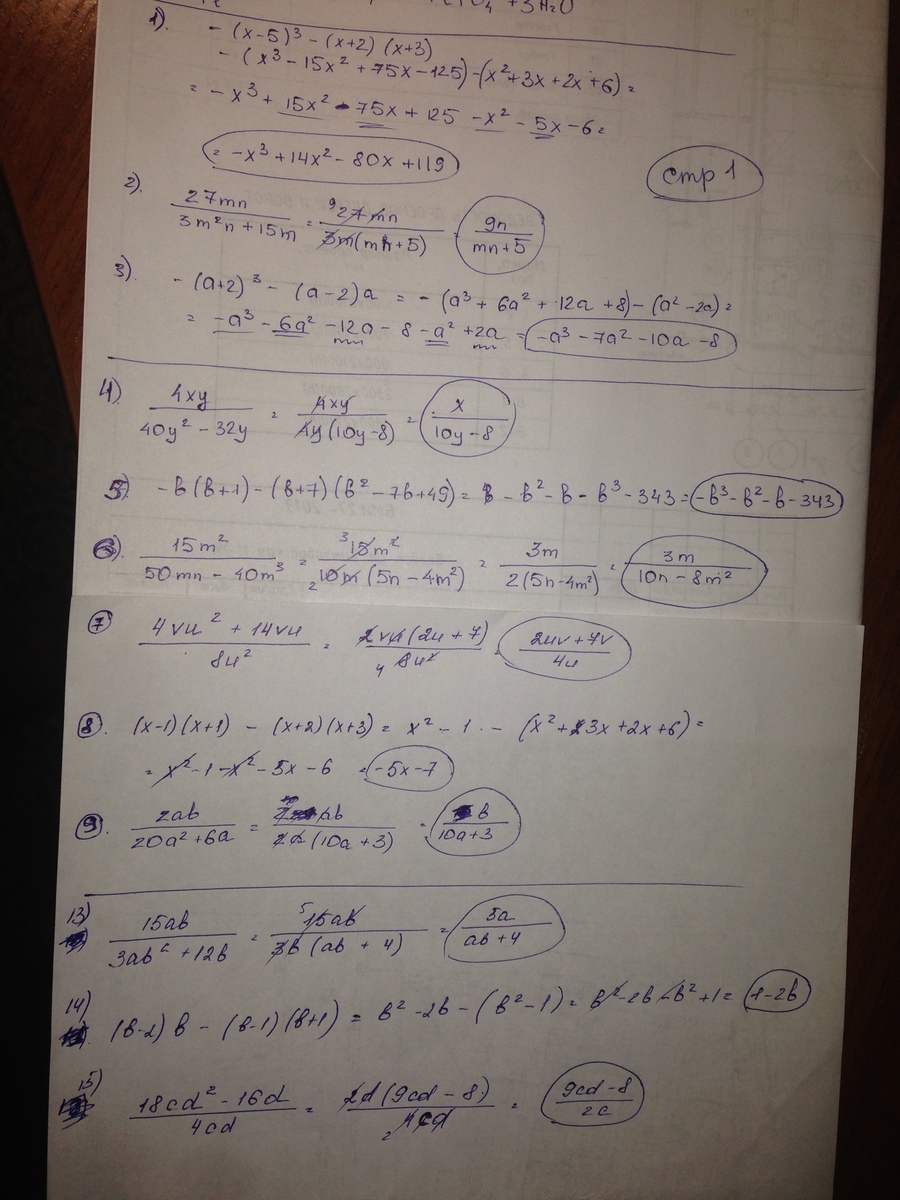 PO₄ + 3H₂O
1). - (x-5)³ - (x+2) (x+3)
- (x³ - 15x² + 75x - 125) - (x² + 3x + 2x + 6) =
= - x³ + 15x² - 75x + 125 - x² - 5x - 6 =
= -x³ + 14x² - 80x + 119
стр 1
2). 27mn / (3m²n + 15m) = 9 27mn / 3m(mn+5) = 9n / (mn+5)
3). - (a+2)³ - (a-2)a = - (a³ + 6a² + 12a + 8) - (a² - 2a) =
= -a³ - 6a² - 12a - 8 - a² + 2a = -a³ - 7a² - 10a - 8
4) 4xy / (40y² - 32y) = 4xy / 4y(10y-8) = x / (10y-8)
5). -b(b+1) - (b+7)(b² - 7b + 49) = - b² - b - b³ - 343 = -b³ - b² - b - 343
6). 15m² / (50mn - 40m³) = 3 15m² / 2 10m (5n - 4m²) = 3m / 2(5n-4m²) = 3m / (10n - 8m²)
7 (4vu² + 14vu) / 8u² = 2vu(2u+7) / 4 8u² = (2uv+7v) / 4u
8. (x-1)(x+1) - (x+2)(x+3) = x² - 1 - (x² + 3x + 2x + 6) =
= x² - 1 - x² - 5x - 6 = -5x-7
9. 2ab / (20a²+6a) = ab / 2a(10a+3) = b / (10a+3)
13) 15ab / (3ab² + 12b) = 5 15ab / 3b (ab + 4) = 5a / (ab+4)
14) (b-2) b - (b-1)(b+1) = b² - 2b - (b² - 1) = b² - 2b - b² + 1 = 1-2b
15) (18cd² - 16d) / 4cd = 2d(9cd - 8) / 2 4cd = (9cd-8) / 2c